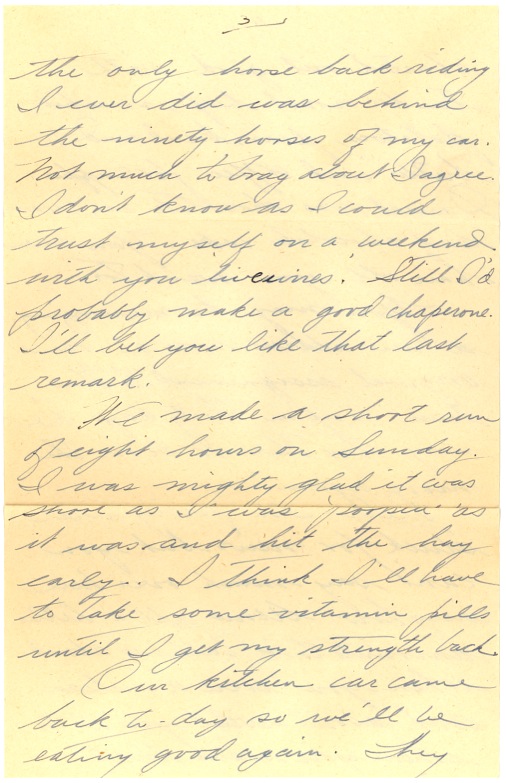 2
the only horse back riding
I ever did was behind
the ninety horses of my car.
Not much to brag about I agree.
I don't know as I could
trust myself on a weekend
with you 'livewires'. Still I'd
probably make a good chaperone.
I'll bet you like that last
remark.
We made a short run
of eight hours on Sunday.
I was mighty glad it was
short as I was 'pooped' as
it was and hit the hay
early. I think I'll have
to take some vitamin pills
until I get my strength back.
Our kitchen car came
back to-day so we'll be
eating good again. They